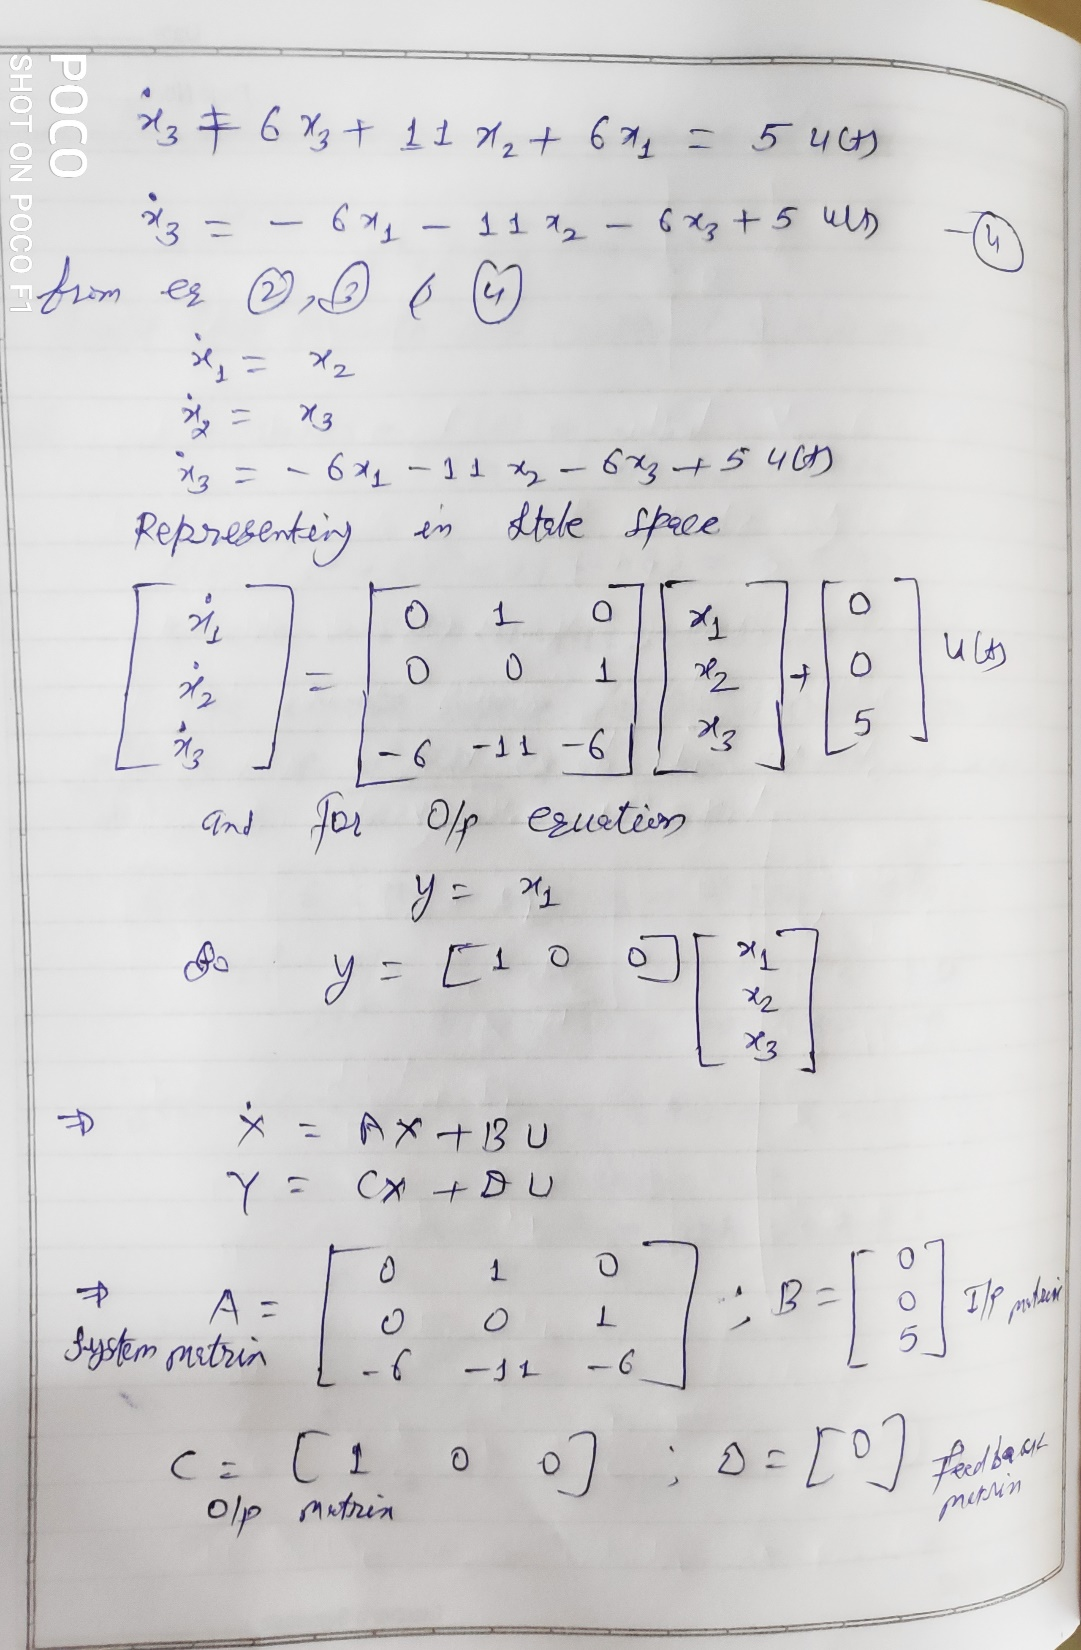 ẋ₃ + 6x₃ + 11x₂ + 6x₁ = 5 u(t)
ẋ₃ = - 6x₁ - 11x₂ - 6x₃ + 5 u(t) -④
from eq ②, ③ & ④
ẋ₁ = x₂
ẋ₂ = x₃
ẋ₃ = - 6x₁ - 11x₂ - 6x₃ + 5 u(t)
Representing in state space
[ẋ₁ ẋ₂ ẋ₃] = [0 1 0; 0 0 1; -6 -11 -6] [x₁ x₂ x₃] + [0 0 5] u(t)
and for O/p equation
y = x₁
So y = [1 0 0] [x₁ x₂ x₃]
⇒ Ẋ = AX + BU
Y = CX + DU
⇒ A = [0 1 0; 0 0 1; -6 -11 -6] ; B = [0 0 5] I/p matrix
System matrix
C = [1 0 0] ; D = [0] Feedback matrix
O/p matrix
POCO
SHOT ON POCO F1